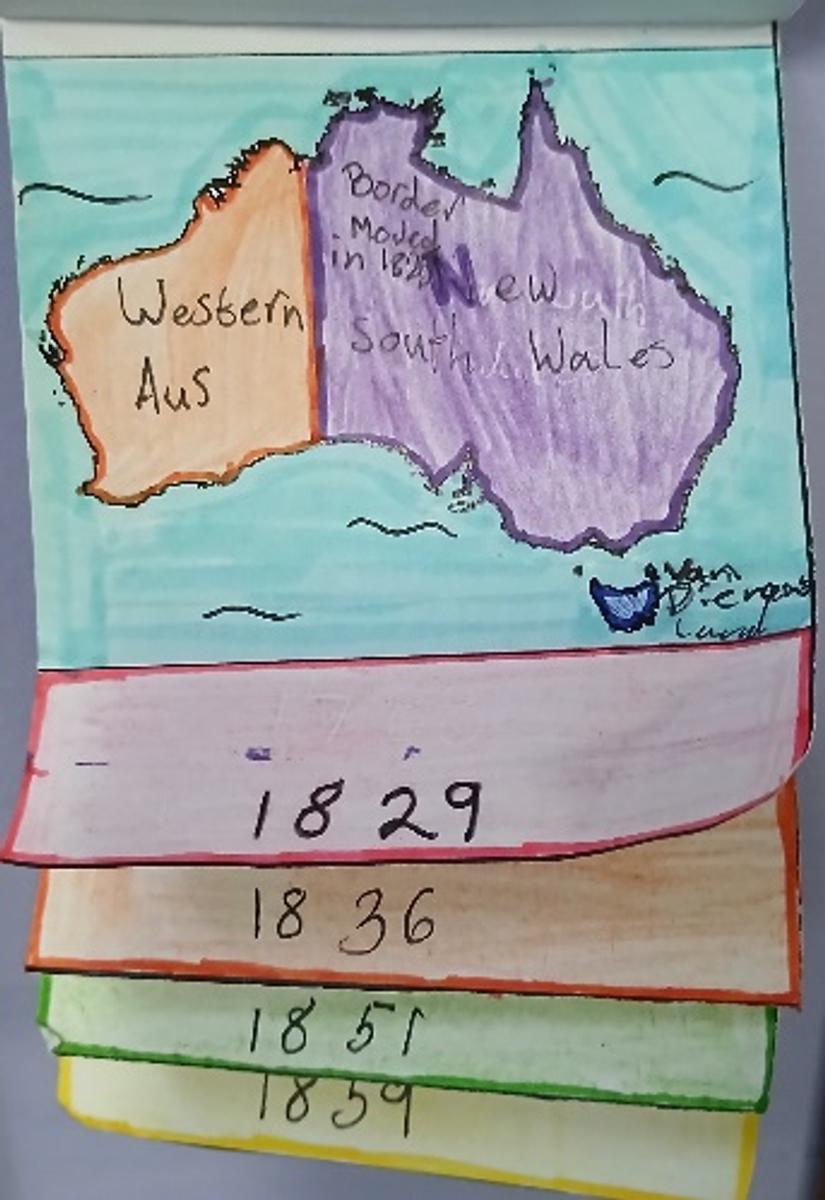 Border
Moved
in 182
Western
Aus
New
South Wales
Van
Land
1829
1836
1851
1859